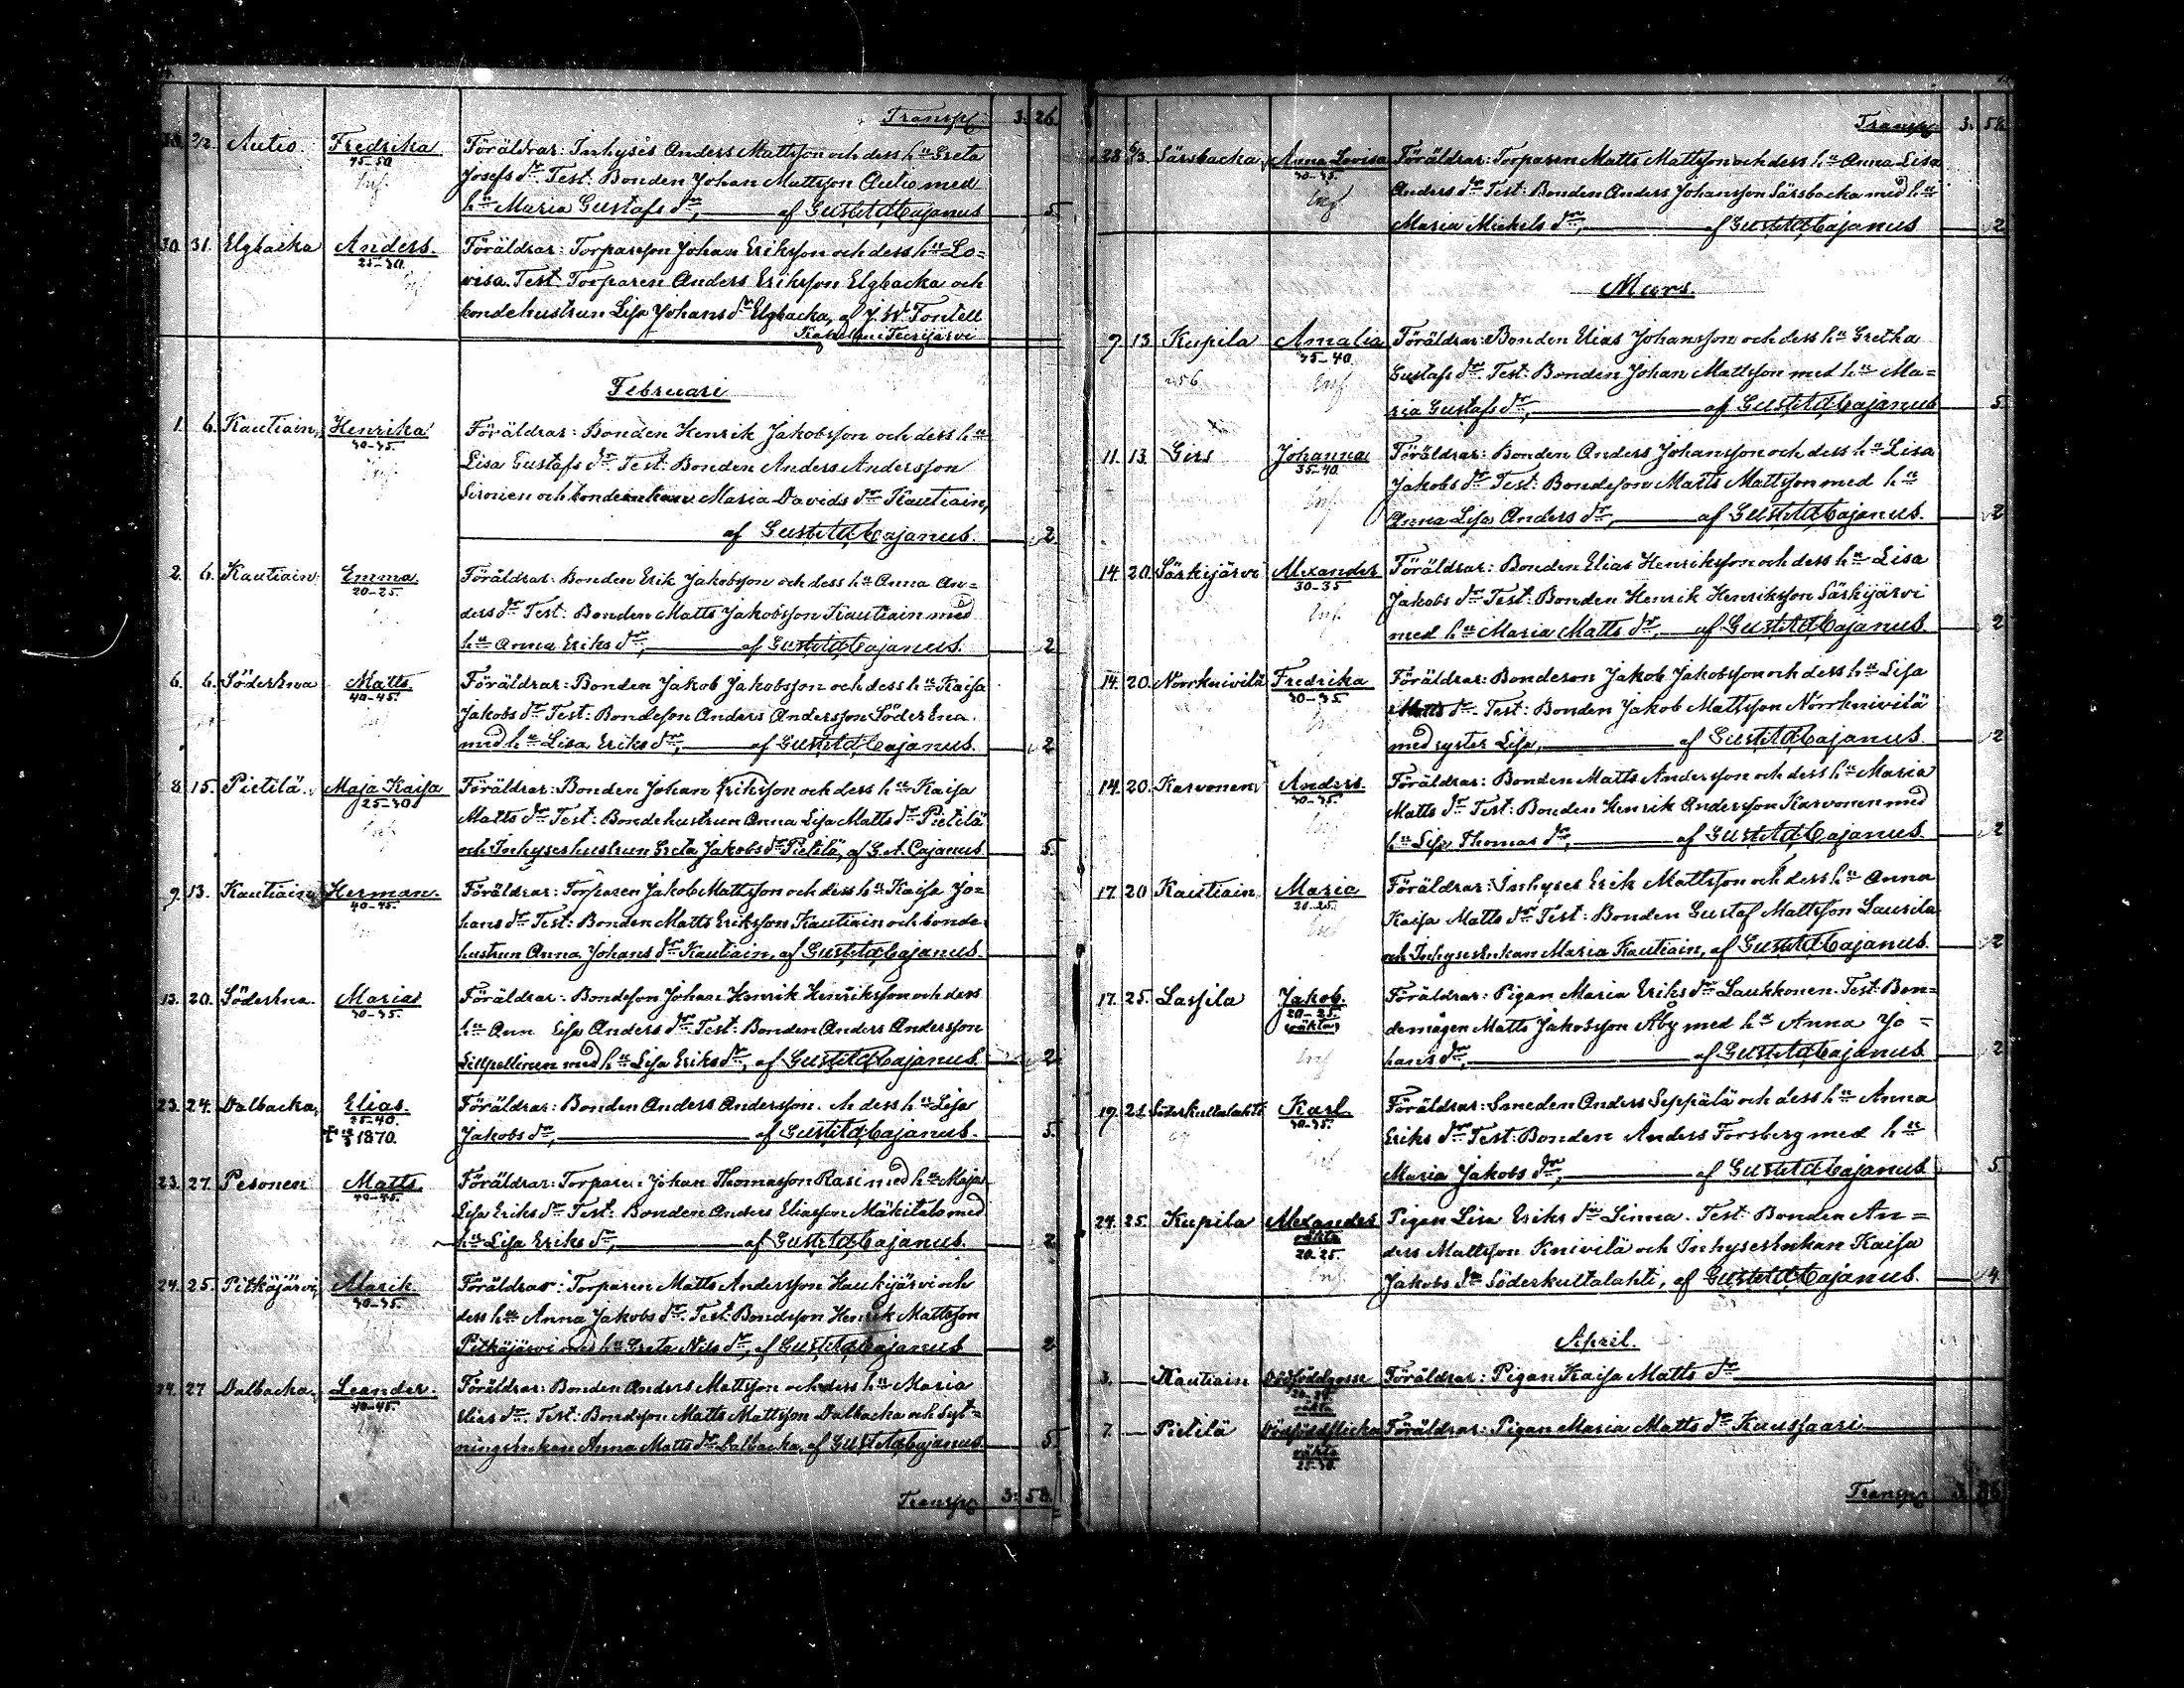 Transp. 3. 26.
30. 2/2. Autio. Fredrika Föräldrar: Inhyses Anders Mattsson och dess hu Greta
45-50 Josefs dr. Test: Bonden Johan Mattsson Autio med
hu Maria Gustafs dr, af Gust. Ad. Cajanus 5.
30. 31. Elgbacka Anders. Föräldrar: Torparson Johan Eriksson och dess hu Lo=
25-30. visa. Test. Torparen Anders Eriksson Elgbacka och
bondehustrun Lisa Johans dr Elgbacka, af J. W. Fontell
Kapellan i Terijärvi
Februari
1. 6. Kautiain, Henrika Föräldrar: Bonden Henrik Jakobsson och dess hu
30-35. Lisa Gustafs dr. Test: Bonden Anders Andersson
Sironen och Maria Davids dr Kautiain,
af Gust. Ad. Cajanus. 2.
2. 6. Kautiain Emma. Föräldrar: Bonden Erik Jakobsson och dess hu Anna An=
20-25. ders dr Test: Bonden Matts Jakobsson Kautiain med
hu Anna Eriks dr, af Gust. Ad. Cajanus. 2
6. 6. Söderena Matts. Föräldrar: Bonden Jakob Jakobsson och dess hu Kaisa
40-45. Jakobs dr Test: Bondeson Anders Andersson Söder Ena.
med hu Lisa Eriks dr, af Gust. Ad. Cajanus. 2
8. 15. Pietilä. Maja Kaisa Föräldrar: Bonden Johan Eriksson och dess hu Kaisa
25-30 Matts dr Test: Bondehustrun Anna Lisa Matts dr Pietilä
och Inhyseshustrun Greta Jakobs dr Pietilä, af G. A. Cajanus. 5.
9. 13. Kautiain Herman. Föräldrar: Torparen Jakob Mattsson och dess hu Kaisa Jo=
40-45. hans dr Test: Bonden Matts Eriksson Kautiain och bonde
hustrun Anna Johans dr Kautiain, af Gust. Ad. Cajanus.
13. 20. Söderena. Maria Föräldrar: Bondeson Johan Henrik Henriksson och dess
30-35. hu Ann Lisa Anders dr Test: Bonden Anders Andersson
med hu Lisa Eriks dr, af Gust. Ad. Cajanus. 2
23. 24. Dalbacka, Elias. Föräldrar: Bonden Anders Andersson. ch dess hu Lisa
35-40. Jakobs dr, af Gust. Ad. Cajanus. 5.
1870.
23. 27. Pesonen Matts Föräldrar: Torparen Johan Thomasson Rasi med hu Maja
40-45. Lisa Eriks dr Test: Bonden Anders Eliasson Mäkitalo med
hu Lisa Eriks dr, af Gust. Ad. Cajanus. 2
24. 25. Pitkäjärvi, Marik. Föräldrar: Torparen Matts Andersson Haukijärvi och
30-35. dess hu Anna Jakobs dr. Test: Bondeson Henrik Mattsson
Pitkäjärvi med hu Greta Nils dr, af Gust. Ad. Cajanus 2
24. 27 Dalbacka. Leander. Föräldrar: Bonden Anders Mattsson och dess hu Maria
40-45. Elias dr. Test: Bondeson Matts Mattsson Dalbacka och Syt=
ningsenkan Anna Matts dr Dalbacka, af Gust. Ad. Cajanus. 5.
Transp. 3. 58.
Transp. 3. 58.
28. 6/3. Särsbacka Anna Lovisa Föräldrar: Torparen Matts Mattsson och dess hu Anna Lisa
30-35. Anders dr Test: Bonden Anders Johansson Särsbacka med hu
Maria Mickels dr, af Gust. Ad. Cajanus 2
Mars.
9. 13. Kupila Amalia Föräldrar: Bonden Elias Johansson och dess hu Gretha
35-40. Gustafs dr. Test: Bonden Johan Mattsson med hu Ma=
ria Gustafs dr, af Gust. Ad. Cajanus 5.
11. 13. Girs Johanna Föräldrar: Bonden Anders Johansson och dess hu Lisa
35-40. Jakobs dr Test: Bondeson Matts Mattsson med hu
Anna Lisa Anders dr, af Gust. Ad. Cajanus. 2
14. 20. Särkijärvi Alexander Föräldrar: Bonden Elias Henriksson och dess hu Lisa
30-35 Jakobs dr Test: Bonden Henrik Henriksson Särkijärvi
med hu Maria Matts dr, af Gust. Ad. Cajanus. 2
14. 20. Norrknivilä Fredrika Föräldrar: Bondeson Jakob Jakobsson och dess hu Lisa
30-35. Matts dr. Test: Bonden Jakob Mattsson Norrknivilä
med syster Lisa, af Gust. Ad. Cajanus. 2
14. 20. Karvonen Anders. Föräldrar: Bonden Matts Andersson och dess hu Maria
30-35. Matts dr Test: Bonden Henrik Andersson Karvonen med
hu Lisa Thomas dr, af Gust. Ad. Cajanus. 2
17. 20 Kautiain Maria Föräldrar: Inhyses Erik Mattsson och dess hu Anna
20-25. Kaisa Matts dr Test: Bonden Gustaf Mattsson Laurila
och Inhysesenkan Maria Kautiain, af Gust. Ad. Cajanus. 2
17. 25. Lassila Jakob. Föräldrar: Pigan Maria Eriks dr Laukkonen. Test: Bon=
20-25. demågen Matts Jakobsson Åby med hu Anna Jo=
(oäkta) hans dr, af Gust. Ad. Cajanus. 2
19. 21. Söderkultalahti Karl Föräldrar: Smeden Anders Seppälä och dess hu Anna
30-35. Eriks dr Test: Bonden Anders Forsberg med hu
Maria Jakobs dr, af Gust. Ad. Cajanus 5
24. 25. Kupila Alexander Pigan Lisa Eriks dr Linna. Test: Bonden An=
oäkta ders Mattsson Knivilä och Inhysesenkan Kaisa
20-25. Jakobs dr Söderkultalahti, af Gust. Ad. Cajanus. 4.
April.
3. Kautiain Dödfödd gosse Föräldrar: Pigan Kaisa Matts dr
oäkta
7. Pietilä Dödfödd flicka Föräldrar: Pigan Maria Matts dr Kaussaari
oäkta
25-30.
Transp. 3.